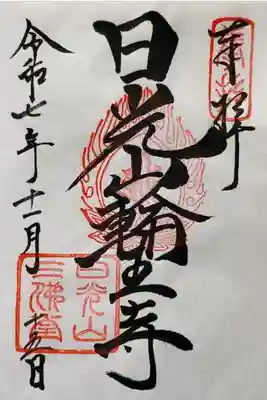 奉拝
日光山輪王寺
令和七年十一月
日
日光山
三佛堂